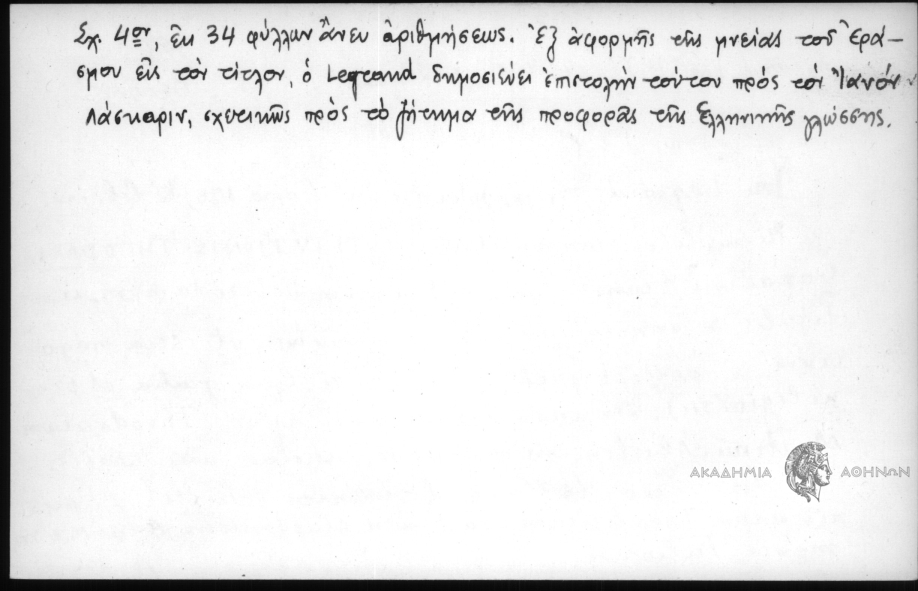 Σχ. 4ον, ἐκ 34 φύλλων ἄνευ ἀριθμήσεως. Ἐξ ἀφορμῆς τῆς μνείας τοῦ Ἐρά-
σμου εἰς τὸν τίτλον, ὁ Legrand δημοσιεύει ἐπιστολὴν τούτου πρὸς τὸν Ἰανὸν
Λάσκαριν, σχετικῶς πρὸς τὸ ζήτημα τῆς προφορᾶς τῆς ἑλληνικῆς γλώσσης.
ΑΚΑΔΗΜΙΑ ΑΘΗΝΩΝ